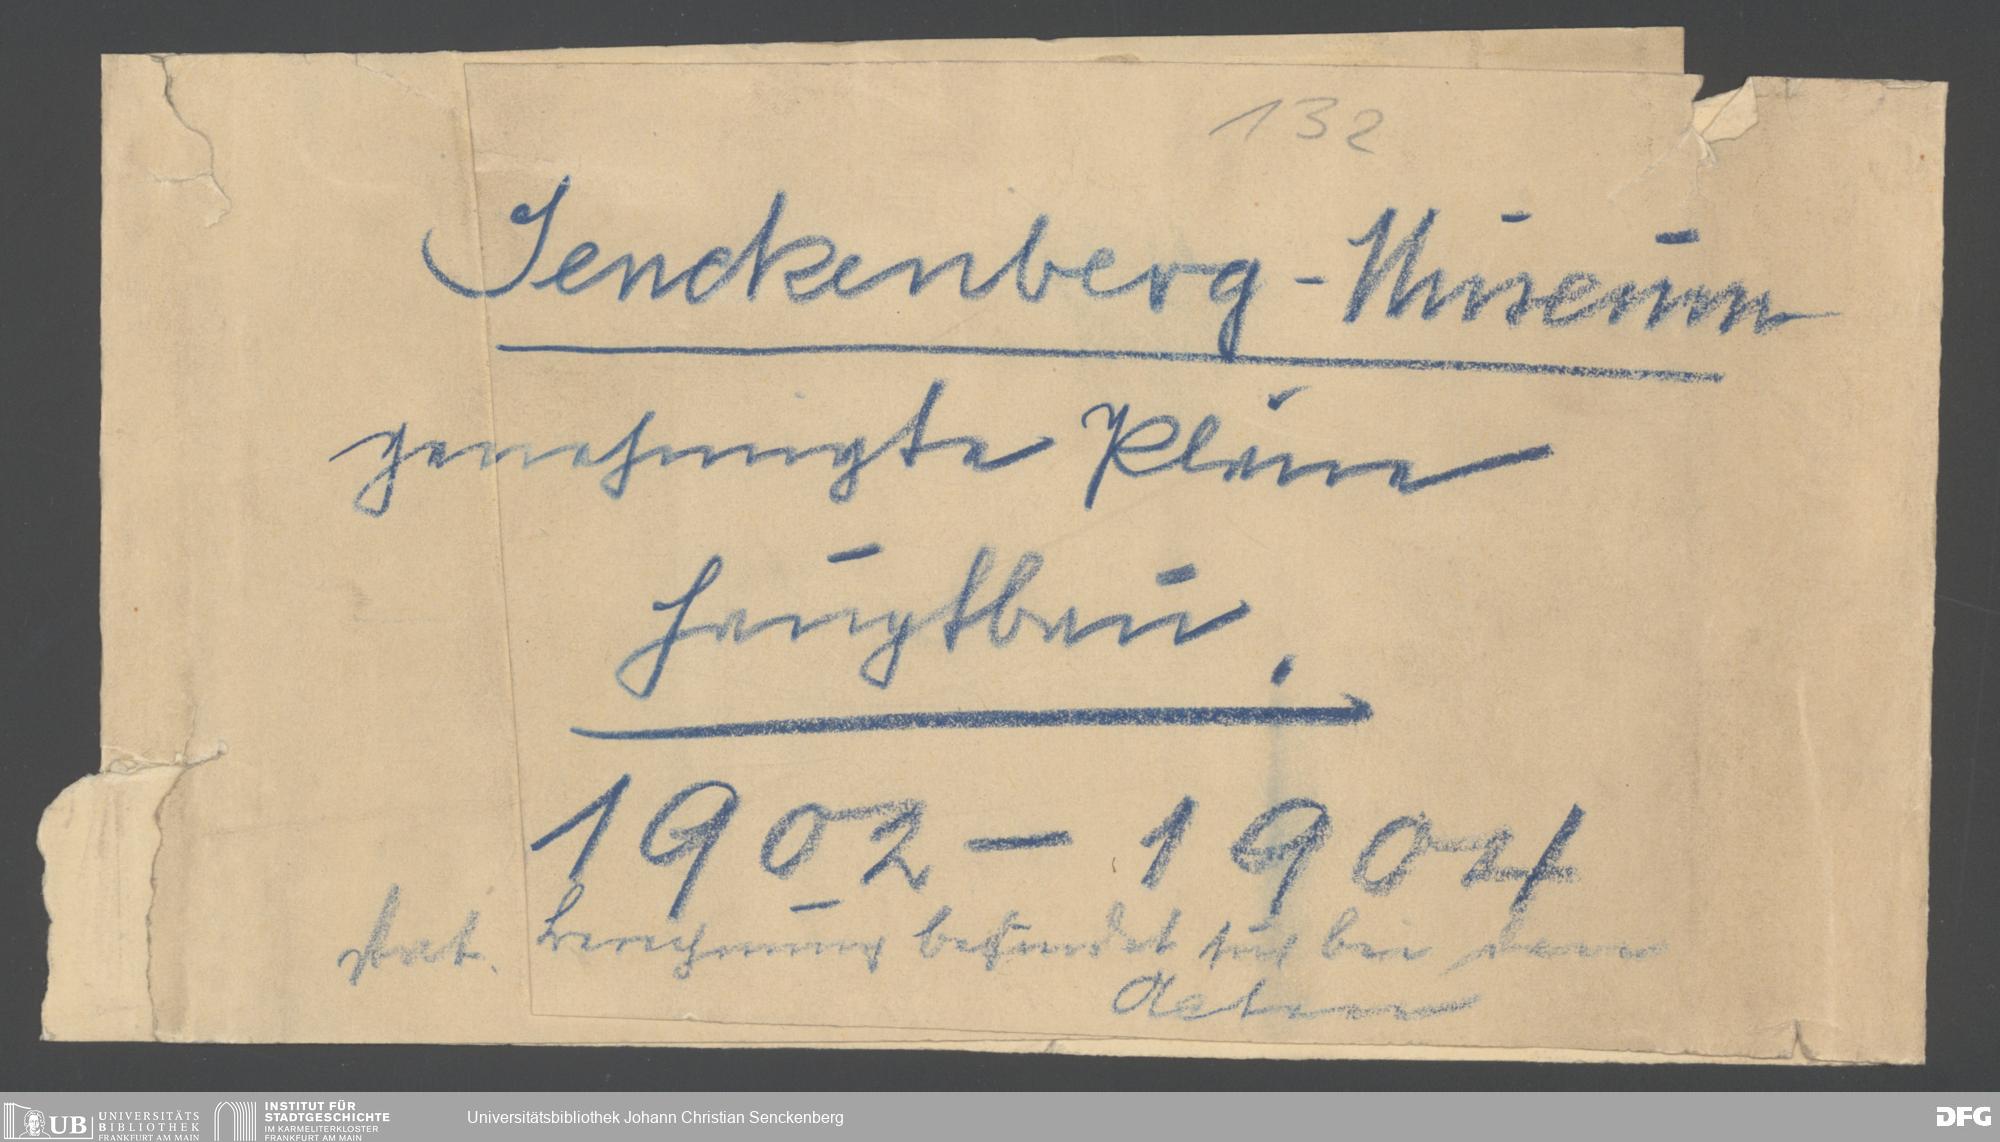 132
Senckenberg-Museum
genehmigte Pläne
Hauptbau.
1902-1904
stat. Berechnung befindet sich bei den
Acten
UB UNIVERSITÄTS
BIBLIOTHEK
FRANKFURT AM MAIN
INSTITUT FÜR
STADTGESCHICHTE
IM KARMELITERKLOSTER
FRANKFURT AM MAIN
Universitätsbibliothek Johann Christian Senckenberg
DFG